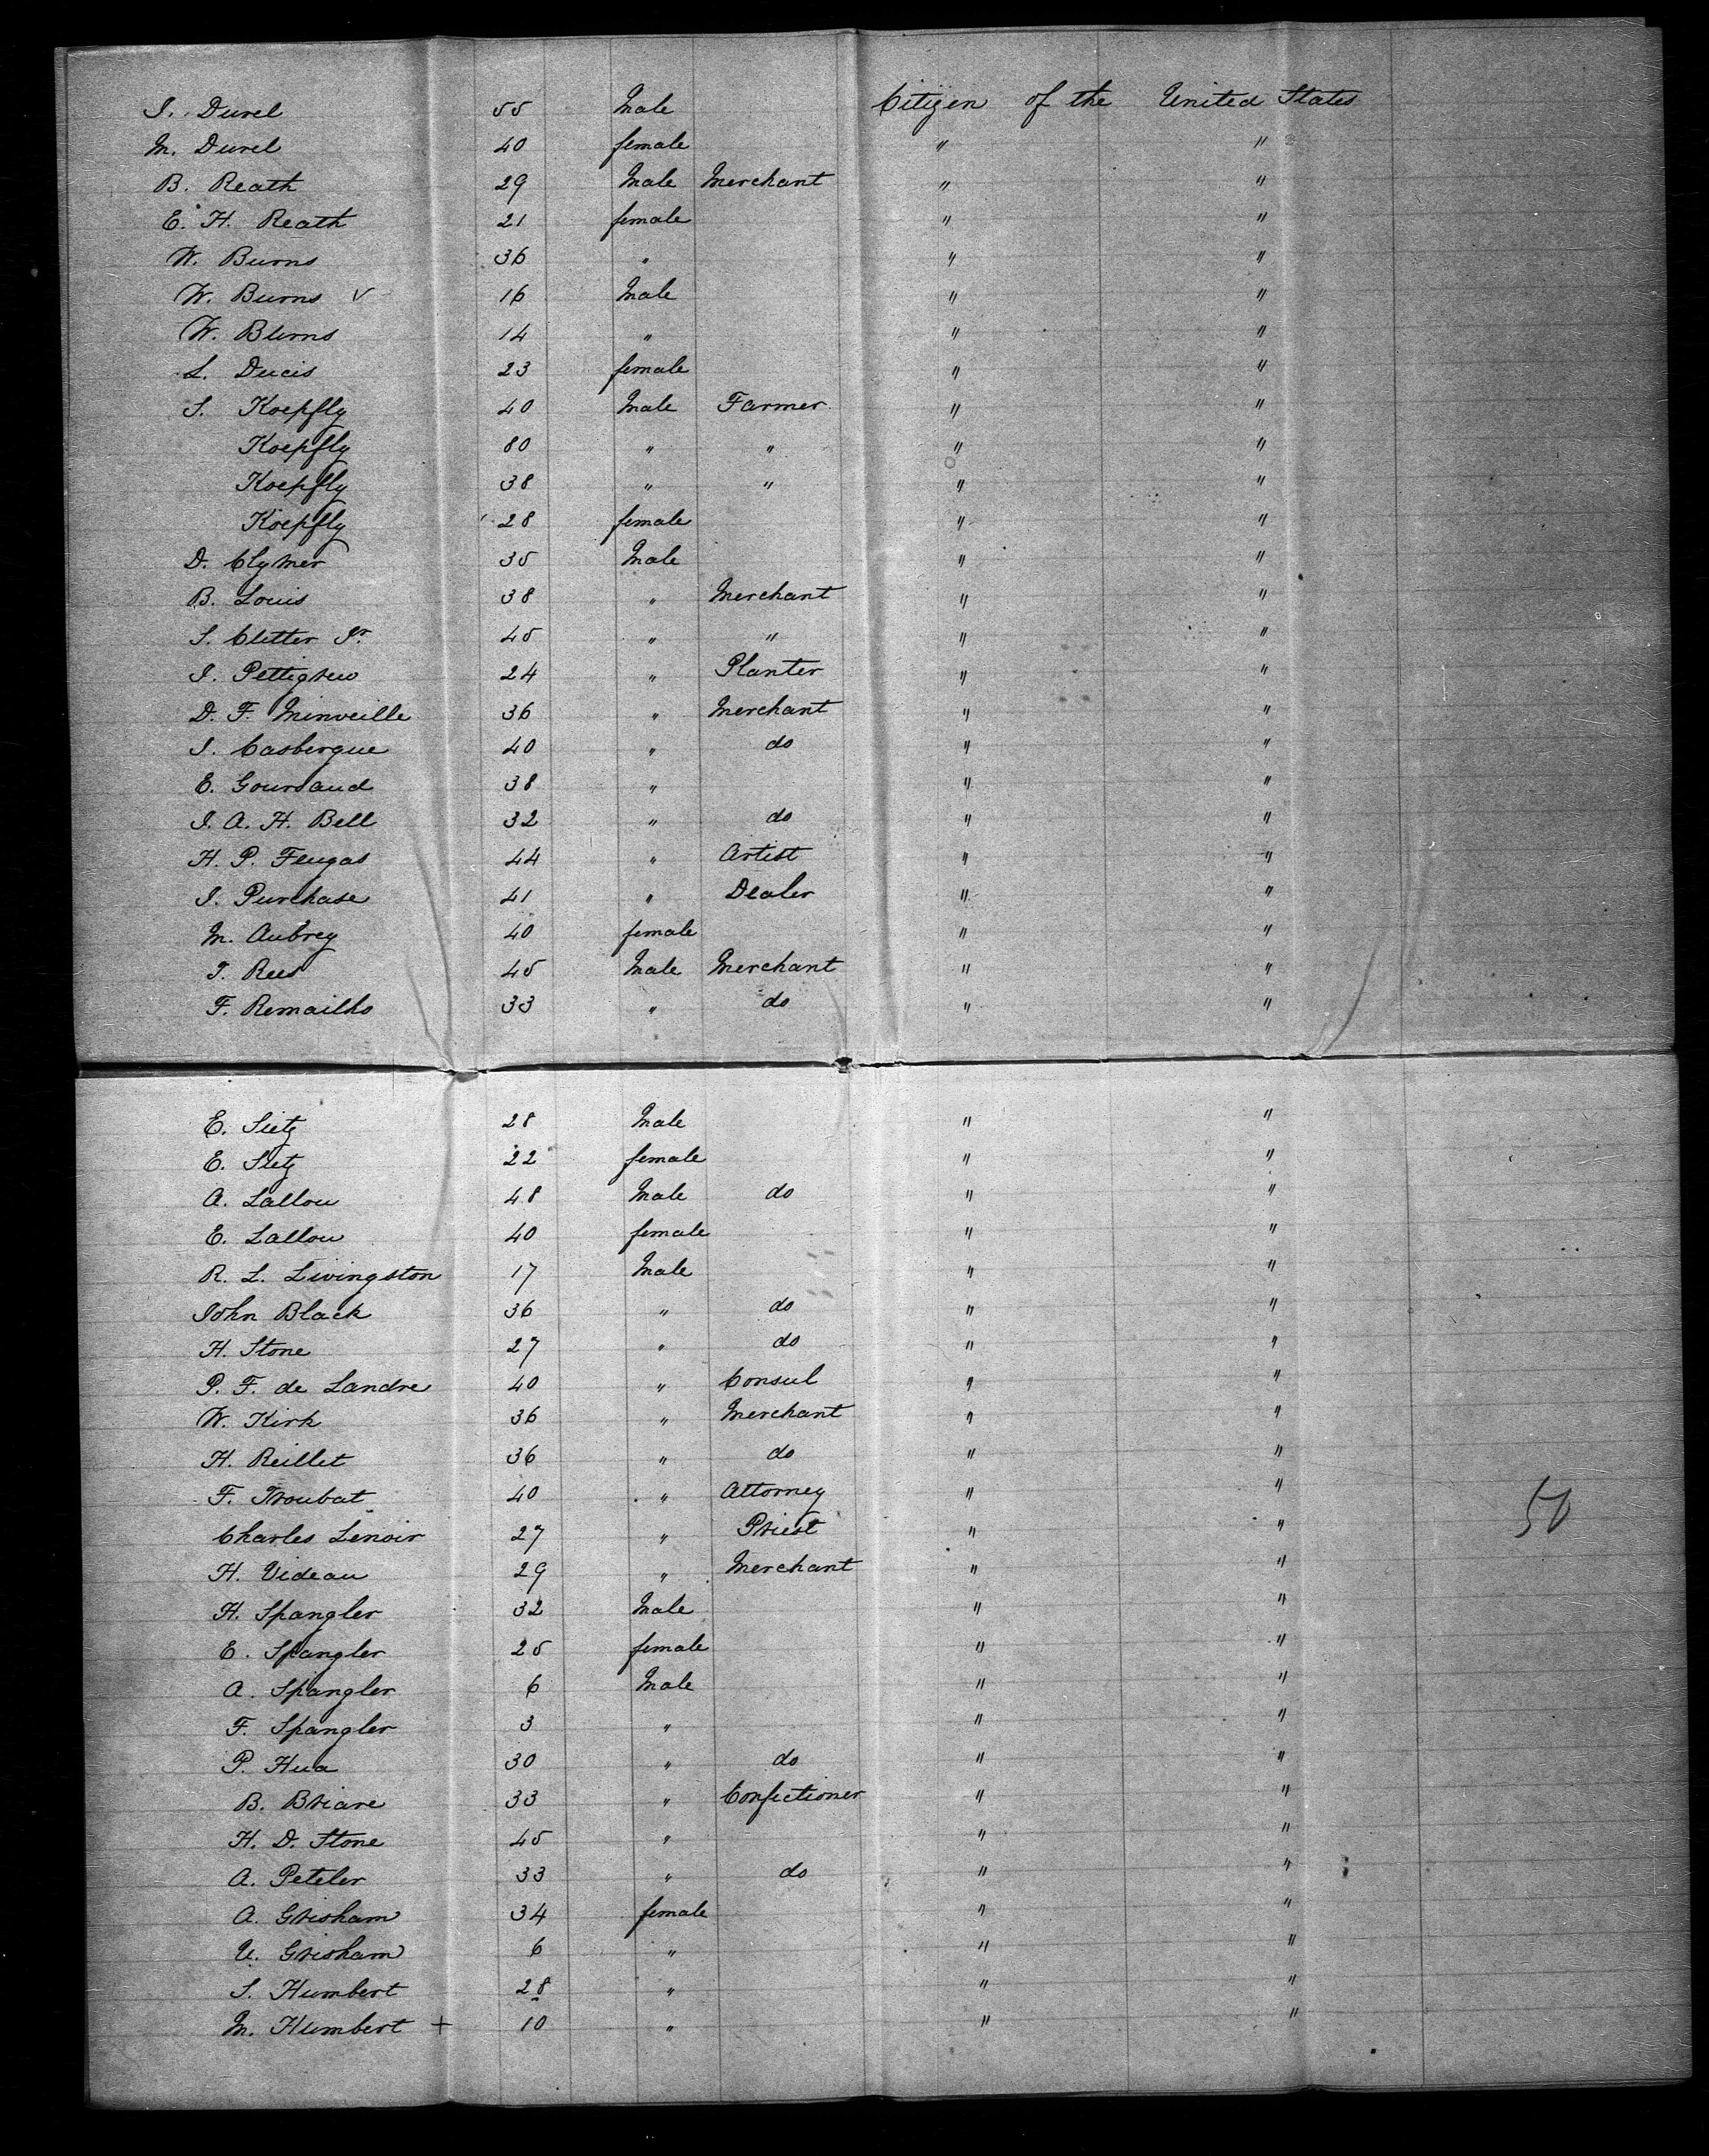 J. Durel 55 Male Citizen of the United States
M. Durel 40 female " "
B. Reath 29 Male Merchant " "
E. H. Reath 21 female " "
W. Burns 36 " " "
W. Burns √ 16 Male " "
W. Burns 14 " " "
L. Ducis 23 female " "
S. Koepfly 40 Male Farmer " "
Koepfly 80 " " " "
Koepfly 38 " " " "
Koepfly 28 female " "
D. Clymer 35 Male " "
B. Louis 38 " Merchant " "
S. Clitter Jr. 45 " " " "
J. Pettigrew 24 " Planter " "
D. F. Minveille 36 " Merchant " "
J. Casbergue 40 " do " "
E. Goursaud 38 " " "
J. A. H. Bell 32 " do " "
H. P. Feugas 44 " Artist " "
J. Purchase 41 " Dealer " "
M. Aubrey 40 female " "
T. Rees 45 Male Merchant " "
F. Remailho 33 " do " "
E. Sietz 28 Male " "
E. Sietz 22 female " "
A. Lallou 48 Male do " "
E. Lallou 40 female " "
R. L. Livingston 17 Male " "
John Black 36 " do " "
H. Stone 27 " do " "
P. F. de Landre 40 " Consul " "
W. Kirk 36 " Merchant " "
H. Reillet 36 " do " "
F. Troubat 40 " Attorney " "
Charles Lenoir 27 " Priest " " 50
H. Videau 29 " Merchant " "
H. Spangler 32 Male " "
E. Spangler 25 female " "
A. Spangler 6 Male " "
F. Spangler 3 " " "
P. Hua 30 " do " "
B. Briare 33 " Confectioner " "
H. D. Stone 45 " " "
A. Peteler 33 " do " "
A. Grisham 34 female " "
U. Grisham 6 " " "
S. Humbert 28 " " "
M. Humbert + 10 " " "